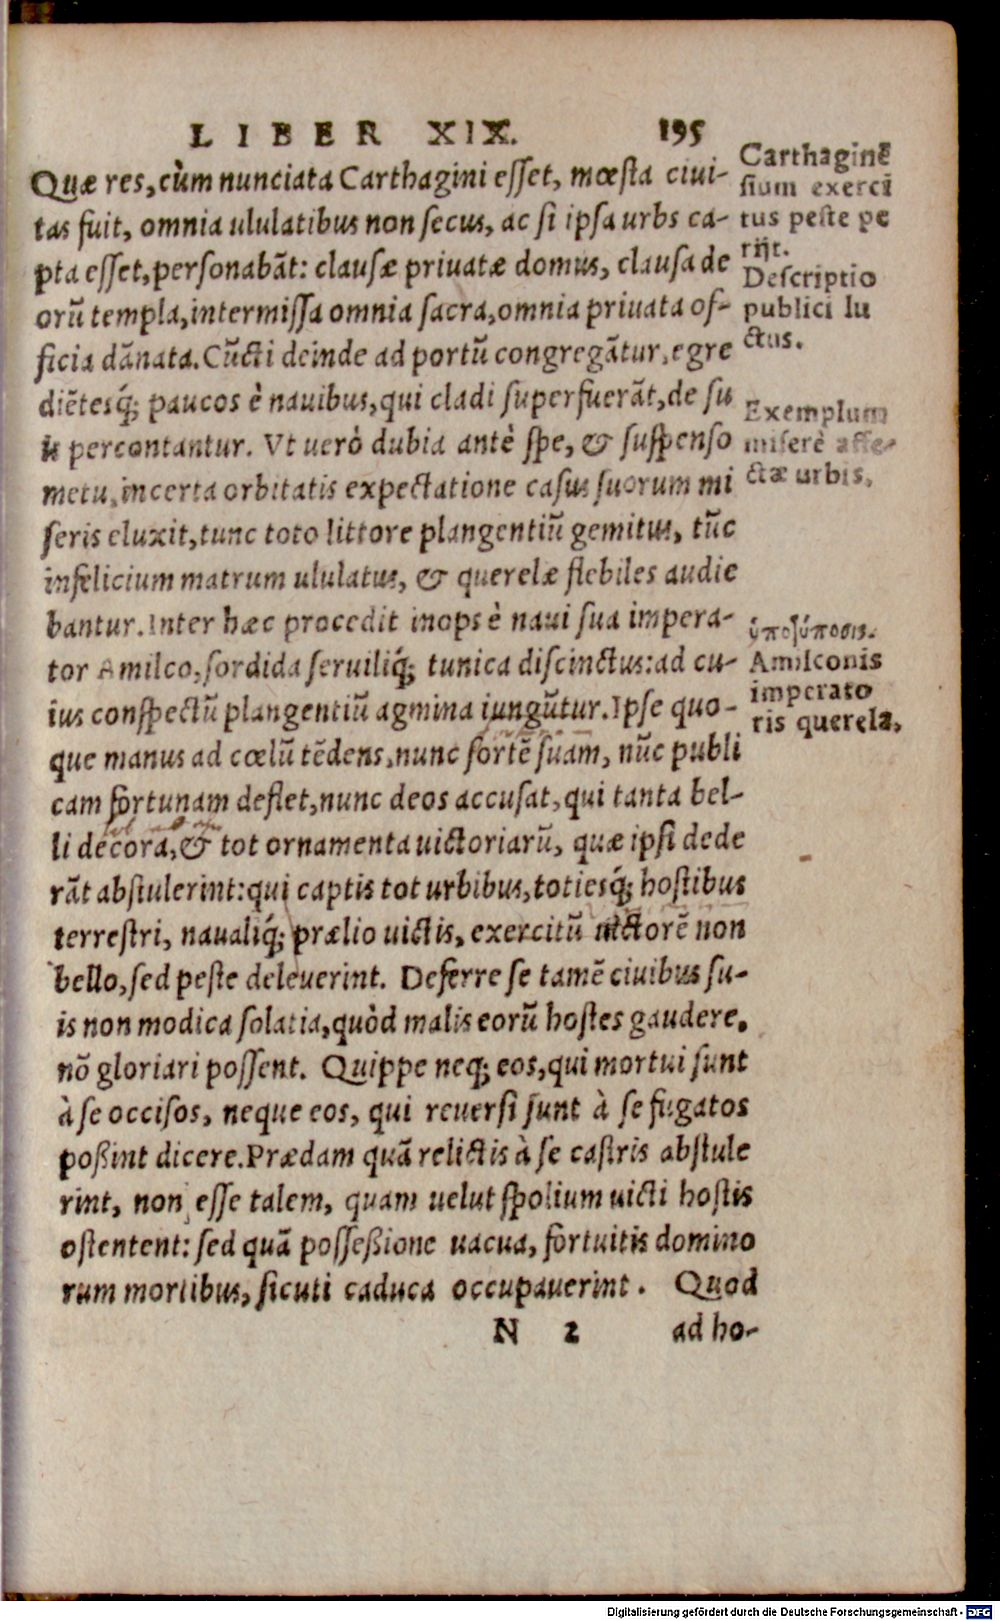 LIBER XIX. 195
Quæ res, cùm nunciata Carthagini esset, mœsta ciui-
tas fuit, omnia ululatibus non secus, ac si ipsa urbs ca-
pta esset, personabãt: clausæ priuatæ domus, clausa de
orũ templa, intermissa omnia sacra, omnia priuata of-
ficia dãnata. Cũcti deinde ad portũ congregãtur, egre
diẽtesq́; paucos è nauibus, qui cladi superfuerãt, de su
is percontantur. Vt uerò dubia antè spe, & suspenso
metu, incerta orbitatis expectatione casus suorum mi
seris eluxit, tunc toto littore plangentiũ gemitus, tũc
infelicium matrum ululatus, & querelæ flebiles audie
bantur. Inter hæc procedit inops è naui sua impera-
tor Amilco, sordida seruiliq́; tunica discinctus: ad cu-
ius conspectũ plangentiũ agmina iungũtur. Ipse quo-
que manus ad cœlũ tẽdens, nunc fortẽ suam, nũc publi
cam fortunam deflet, nunc deos accusat, qui tanta bel-
li decora, & tot ornamenta uictoriarũ, quæ ipsi dede
rãt abstulerint: qui captis tot urbibus, totiesq́; hostibus
terrestri, naualiq́; prælio uictis, exercitũ uictorẽ non
bello, sed peste deleuerint. Deferre se tamẽ ciuibus su-
is non modica solatia, quòd malis eorũ hostes gaudere,
nõ gloriari possent. Quippe neq; eos, qui mortui sunt
à se occisos, neque eos, qui reuersi sunt à se fugatos
poßint dicere. Prædam quã relictis à se castris abstule
rint, non esse talem, quam uelut spolium uicti hostis
ostentent: sed quã posseßione uacua, fortuitis domino
rum mortibus, sicuti caduca occupauerint. Quod
N 2 ad ho-
Carthaginẽ
sium exerci
tus peste pe
rijt.
Descriptio
publici lu
ctus.
Exemplum
miserè affe-
ctæ urbis.
ὑποτύπωσις.
Amilconis
imperato
ris querela,
Digitalisierung gefördert durch die Deutsche Forschungsgemeinschaft - DFG